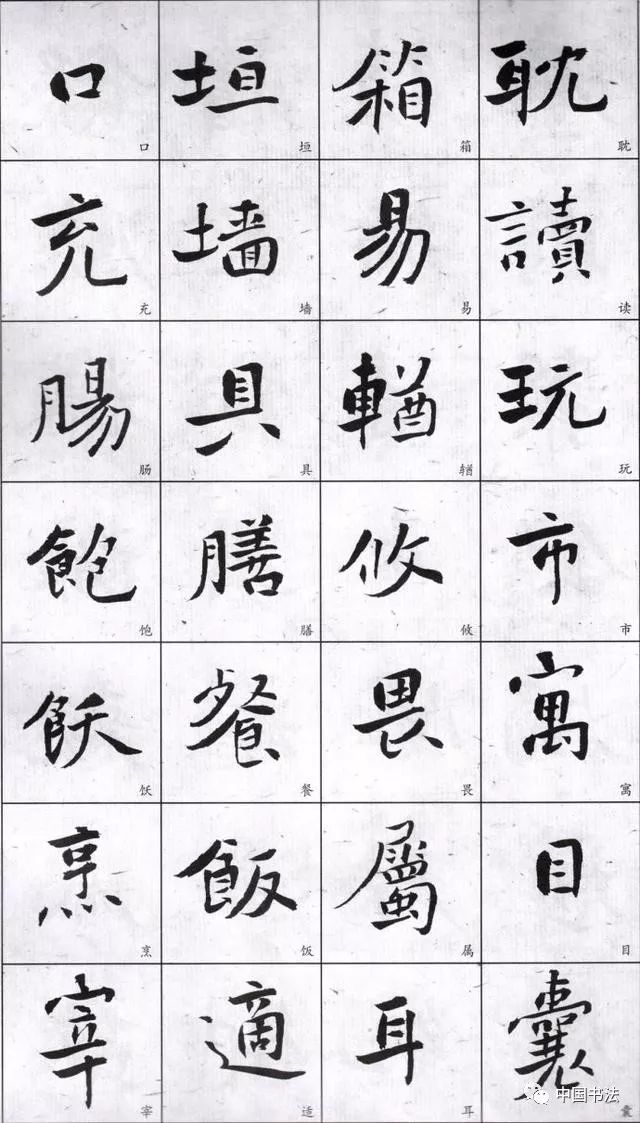 耽讀玩市寓目囊
耽读玩市寓目囊
箱易輶攸畏屬耳
箱易𬨎攸畏属耳
垣墙具膳餐飯適
垣墙具膳餐饭适
口充腸飽飫烹宰
口充肠饱饫烹宰
中国书法